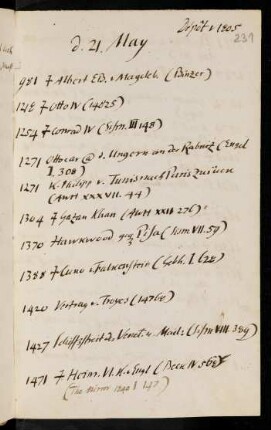 Dépôt 1805
231
d. 21. May
981 † Adalbert EB. v Magdeb. (Pänzer)
1218 † Otto IV (14025)
1254 † Conrad IV (Sism. III 148)
1271 Ottocar @ d. Ungern an der Rabnitz (Engel
I. 308)
1271 K. Philipp v. Tunis nach Paris zurück
(Auvt XXXVII. 44)
1304 † Gazan Khan (Auvt XXII 276)
1370 Hawkwood Pisa (Sism VII. 59)
1388 † Cuno v Falkenstein (Geth. I 628)
1420 Vertrag v. Troyes (14760)
1427 Schiffstreit d. Venet. u. Mail. (Sism VIII. 389)
1471 † Heinr. VI. K. v Engl (Beck IV 568)
(The Mirror 1840 I 147)